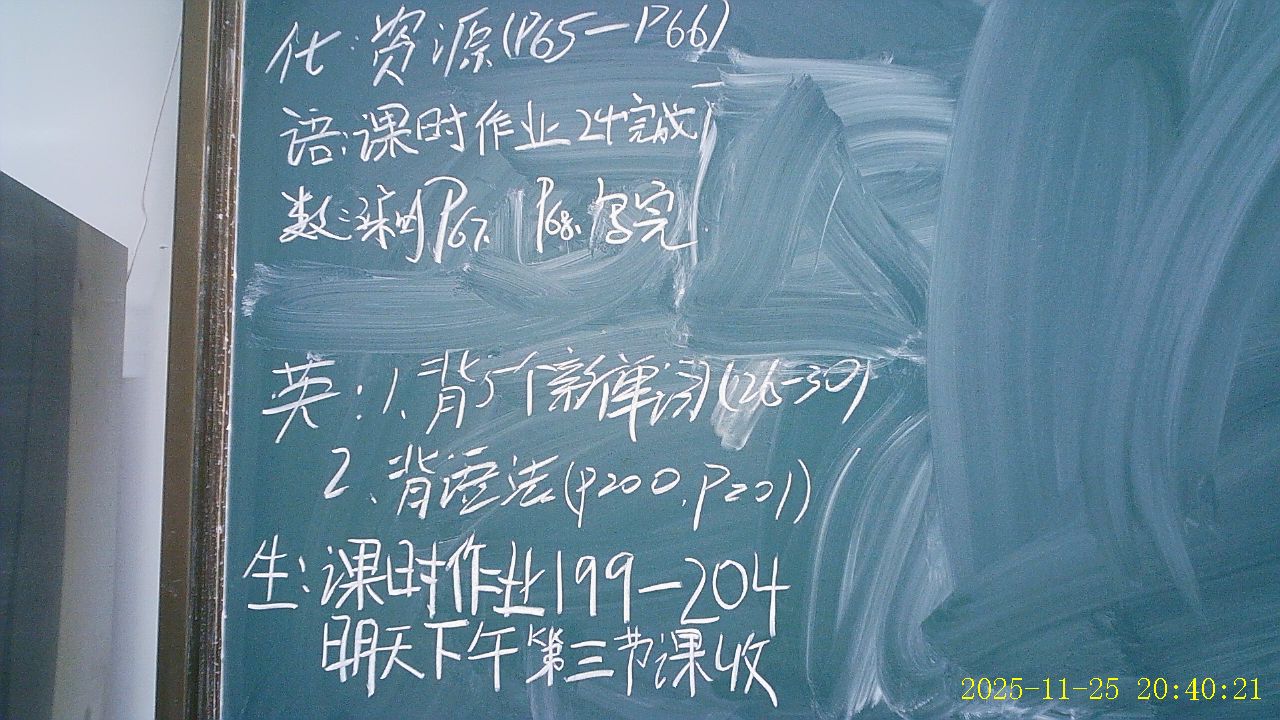 化:资源(P65—P66)
语:课时作业24完成
数:课时P67、P68、写完.
英:1、背5个新单词(26-30)
2、背语法(P200,P201)
生:课时作业199—204
明天下午第三节课收
2025-11-25 20:40:21